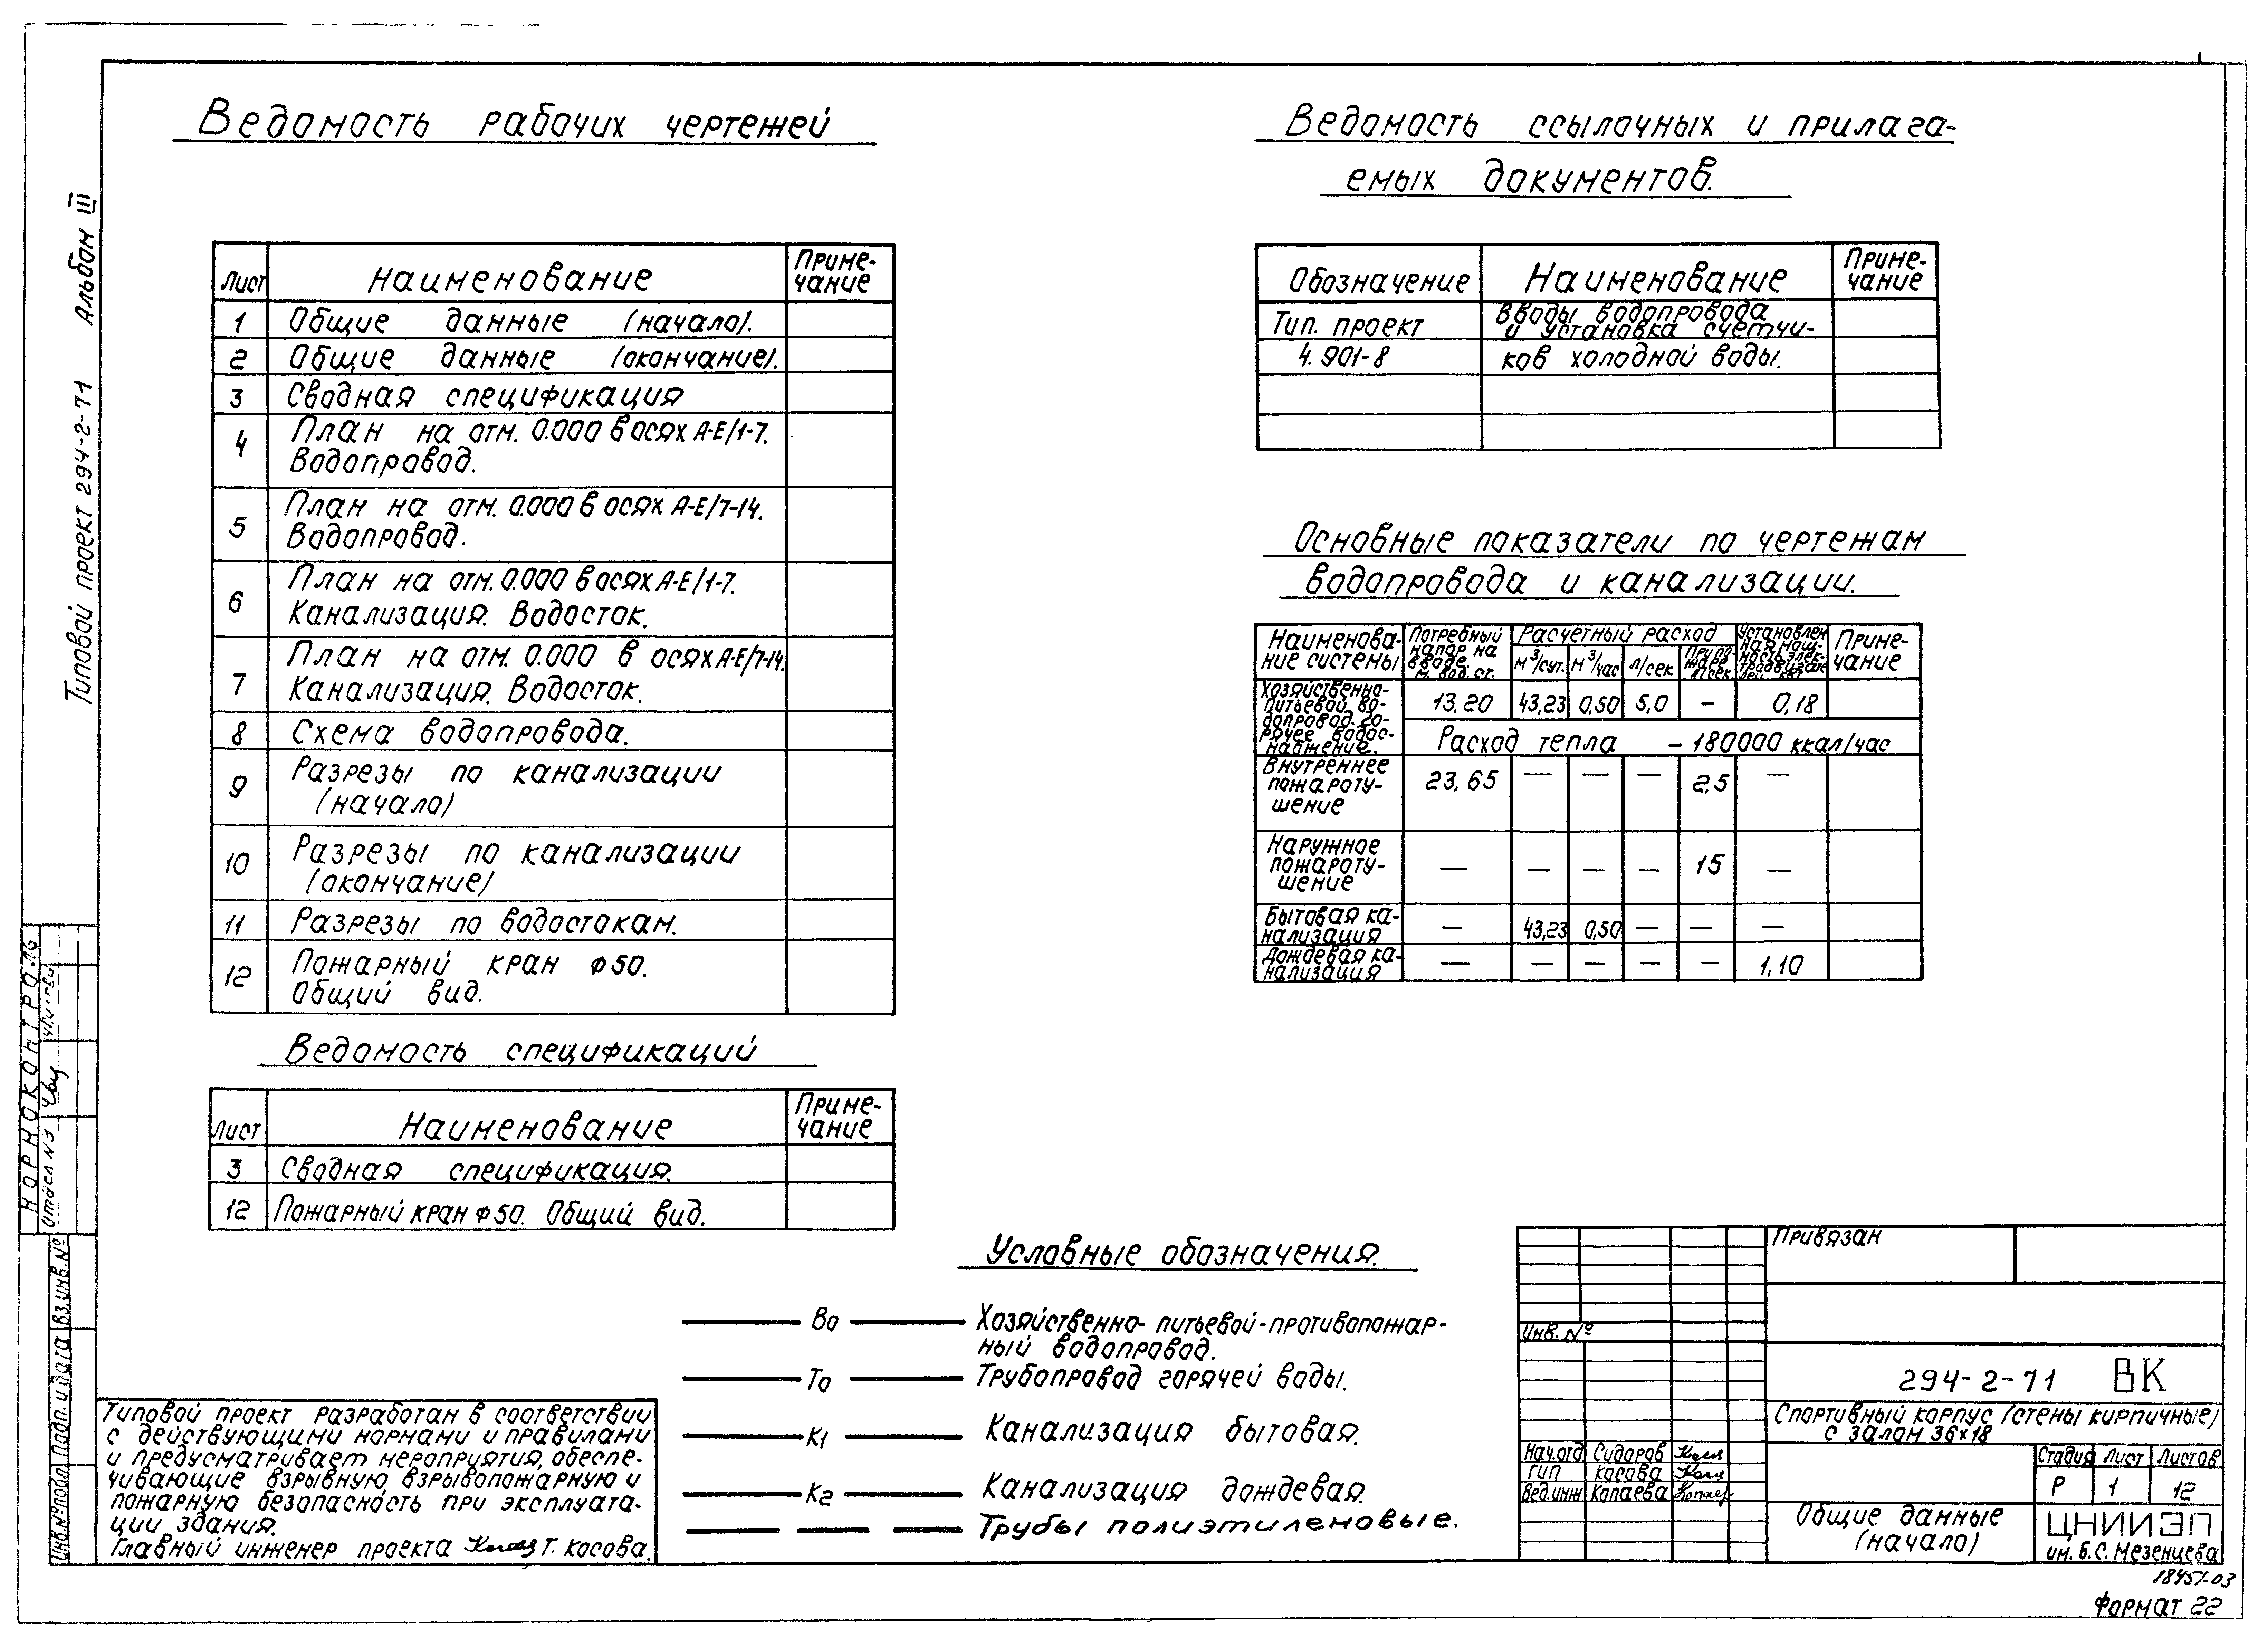 Типовой проект 294-2-71 Альбом III
Ведомость рабочих чертежей
Лист Наименование Приме-
чание
1 Общие данные (начало).
2 Общие данные (окончание).
3 Сводная спецификация
4 План на отм. 0.000 в осях А-Е/1-7.
Водопровод.
5 План на отм. 0.000 в осях А-Е/7-14.
Водопровод.
6 План на отм. 0.000 в осях А-Е/1-7.
Канализация. Водосток.
7 План на отм. 0.000 в осях А-Е/7-14.
Канализация. Водосток.
8 Схема водопровода.
9 Разрезы по канализации
(начало)
10 Разрезы по канализации
(окончание)
11 Разрезы по водостокам.
12 Пожарный кран ф50.
Общий вид.
Ведомость спецификаций
Лист Наименование Приме-
чание
3 Сводная спецификация.
12 Пожарный кран ф50. Общий вид.
Ведомость ссылочных и прилага-
емых документов.
Обозначение Наименование Приме-
чание
Тип. проект Вводы водопровода
и установка счетчи-
4.901-8 ков холодной воды.
Основные показатели по чертежам
водопровода и канализации.
Наименова-
ние системы
Потребный
напор на
вводе
м. вод. ст.
Расчетный расход
м³/сут. м³/час л/сек При по-
жаре
л/сек
Установлен
ная мощ-
ность элек-
тродвигате
лей, квт
Приме-
чание
Хозяйственно-
питьевой во-
допровод. Го-
рячее водос-
набжение.
13,20 43,23 0,50 5,0 – 0,18
Расход тепла – 180000 ккал/час
Внутреннее
пожароту-
шение
23,65 — — — 2,5 —
Наружное
пожароту-
шение
— — — — 15 —
Бытовая ка-
нализация
— 43,23 0,50 — — —
Дождевая ка-
нализация
— — — — — 1,10
Условные обозначения.
В0 Хозяйственно-питьевой-противопожар-
ный водопровод.
Т0 Трубопровод горячей воды.
К1 Канализация бытовая.
К2 Канализация дождевая.
Трубы полиэтиленовые.
Типовой проект разработан в соответствии
с действующими нормами и правилами
и предусматривает мероприятия, обеспе-
чивающие взрывную, взрывопожарную и
пожарную безопасность при эксплуата-
ции здания.
Главный инженер проекта Т. Косова.
НОРМОКОНТРОЛЬ
Отдел №3
Инв.№подл. Подп. и дата Вз.инв.№
Привязан
Инв. №
294-2-71 ВК
Спортивный корпус (стены кирпичные)
с залом 36×18
Нач.отд Сидоров
ГИП Косова
Вед.инж Копаева
Стадия Лист Листов
Р 1 12
Общие данные
(начало)
ЦНИИЭП
им. Б.С. Мезенцева
18451-03
Формат 22